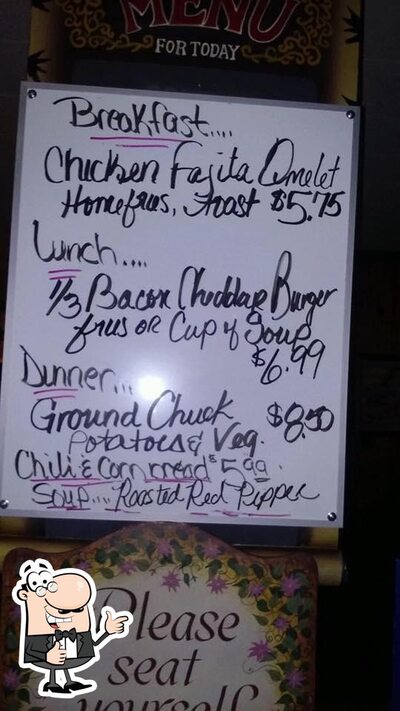 MENU
FOR TODAY
Breakfast....
Chicken Fajita Omelet
Homefries, Toast $5.75
Lunch....
1/3 Bacon Cheddar Burger
fries or Cup of Soup
$6.99
Dinner...
Ground Chuck $8.50
Potatoes & Veg.
Chili & Cornbread $5.99
Soup.... Roasted Red Pepper
Please
seat
yourself